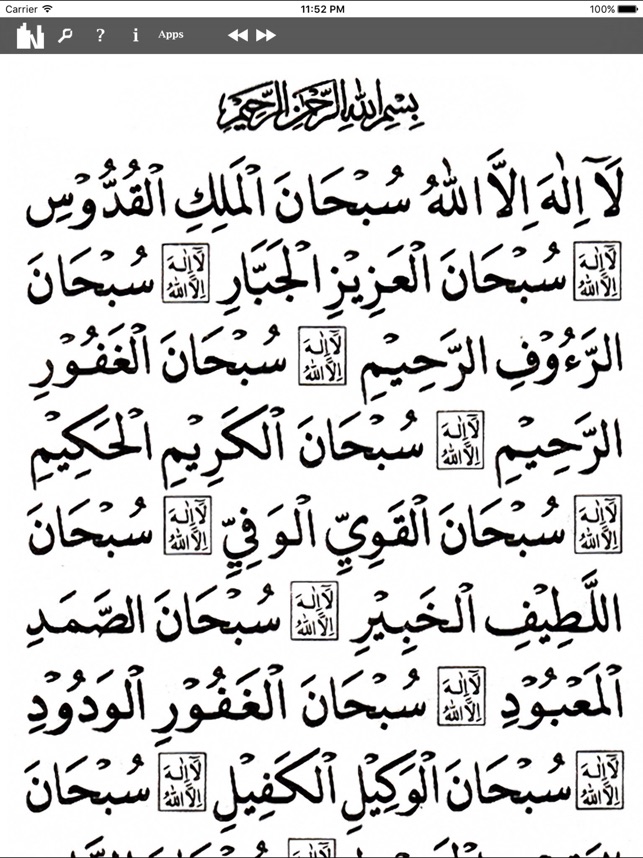 Carrier 11:52 PM 100%
? i Apps
بِسْمِ اللّٰهِ الرَّحْمٰنِ الرَّحِيْمِ
لَآ اِلٰهَ اِلَّا اللّٰهُ سُبْحَانَ الْمَلِكِ الْقُدُّوْسِ
لَآ اِلٰهَ اِلَّا اللّٰهُ سُبْحَانَ الْعَزِيْزِ الْجَبَّارِ لَآ اِلٰهَ اِلَّا اللّٰهُ سُبْحَانَ
الرَّءُوْفِ الرَّحِيْمِ لَآ اِلٰهَ اِلَّا اللّٰهُ سُبْحَانَ الْغَفُوْرِ
الرَّحِيْمِ لَآ اِلٰهَ اِلَّا اللّٰهُ سُبْحَانَ الْكَرِيْمِ الْحَكِيْمِ
لَآ اِلٰهَ اِلَّا اللّٰهُ سُبْحَانَ الْقَوِيِّ الْوَفِيِّ لَآ اِلٰهَ اِلَّا اللّٰهُ سُبْحَانَ
اللَّطِيْفِ الْخَبِيْرِ لَآ اِلٰهَ اِلَّا اللّٰهُ سُبْحَانَ الصَّمَدِ
الْمَعْبُوْدِ لَآ اِلٰهَ اِلَّا اللّٰهُ سُبْحَانَ الْغَفُوْرِ الْوَدُوْدِ
لَآ اِلٰهَ اِلَّا اللّٰهُ سُبْحَانَ الْوَكِيْلِ الْكَفِيْلِ لَآ اِلٰهَ اِلَّا اللّٰهُ سُبْحَانَ